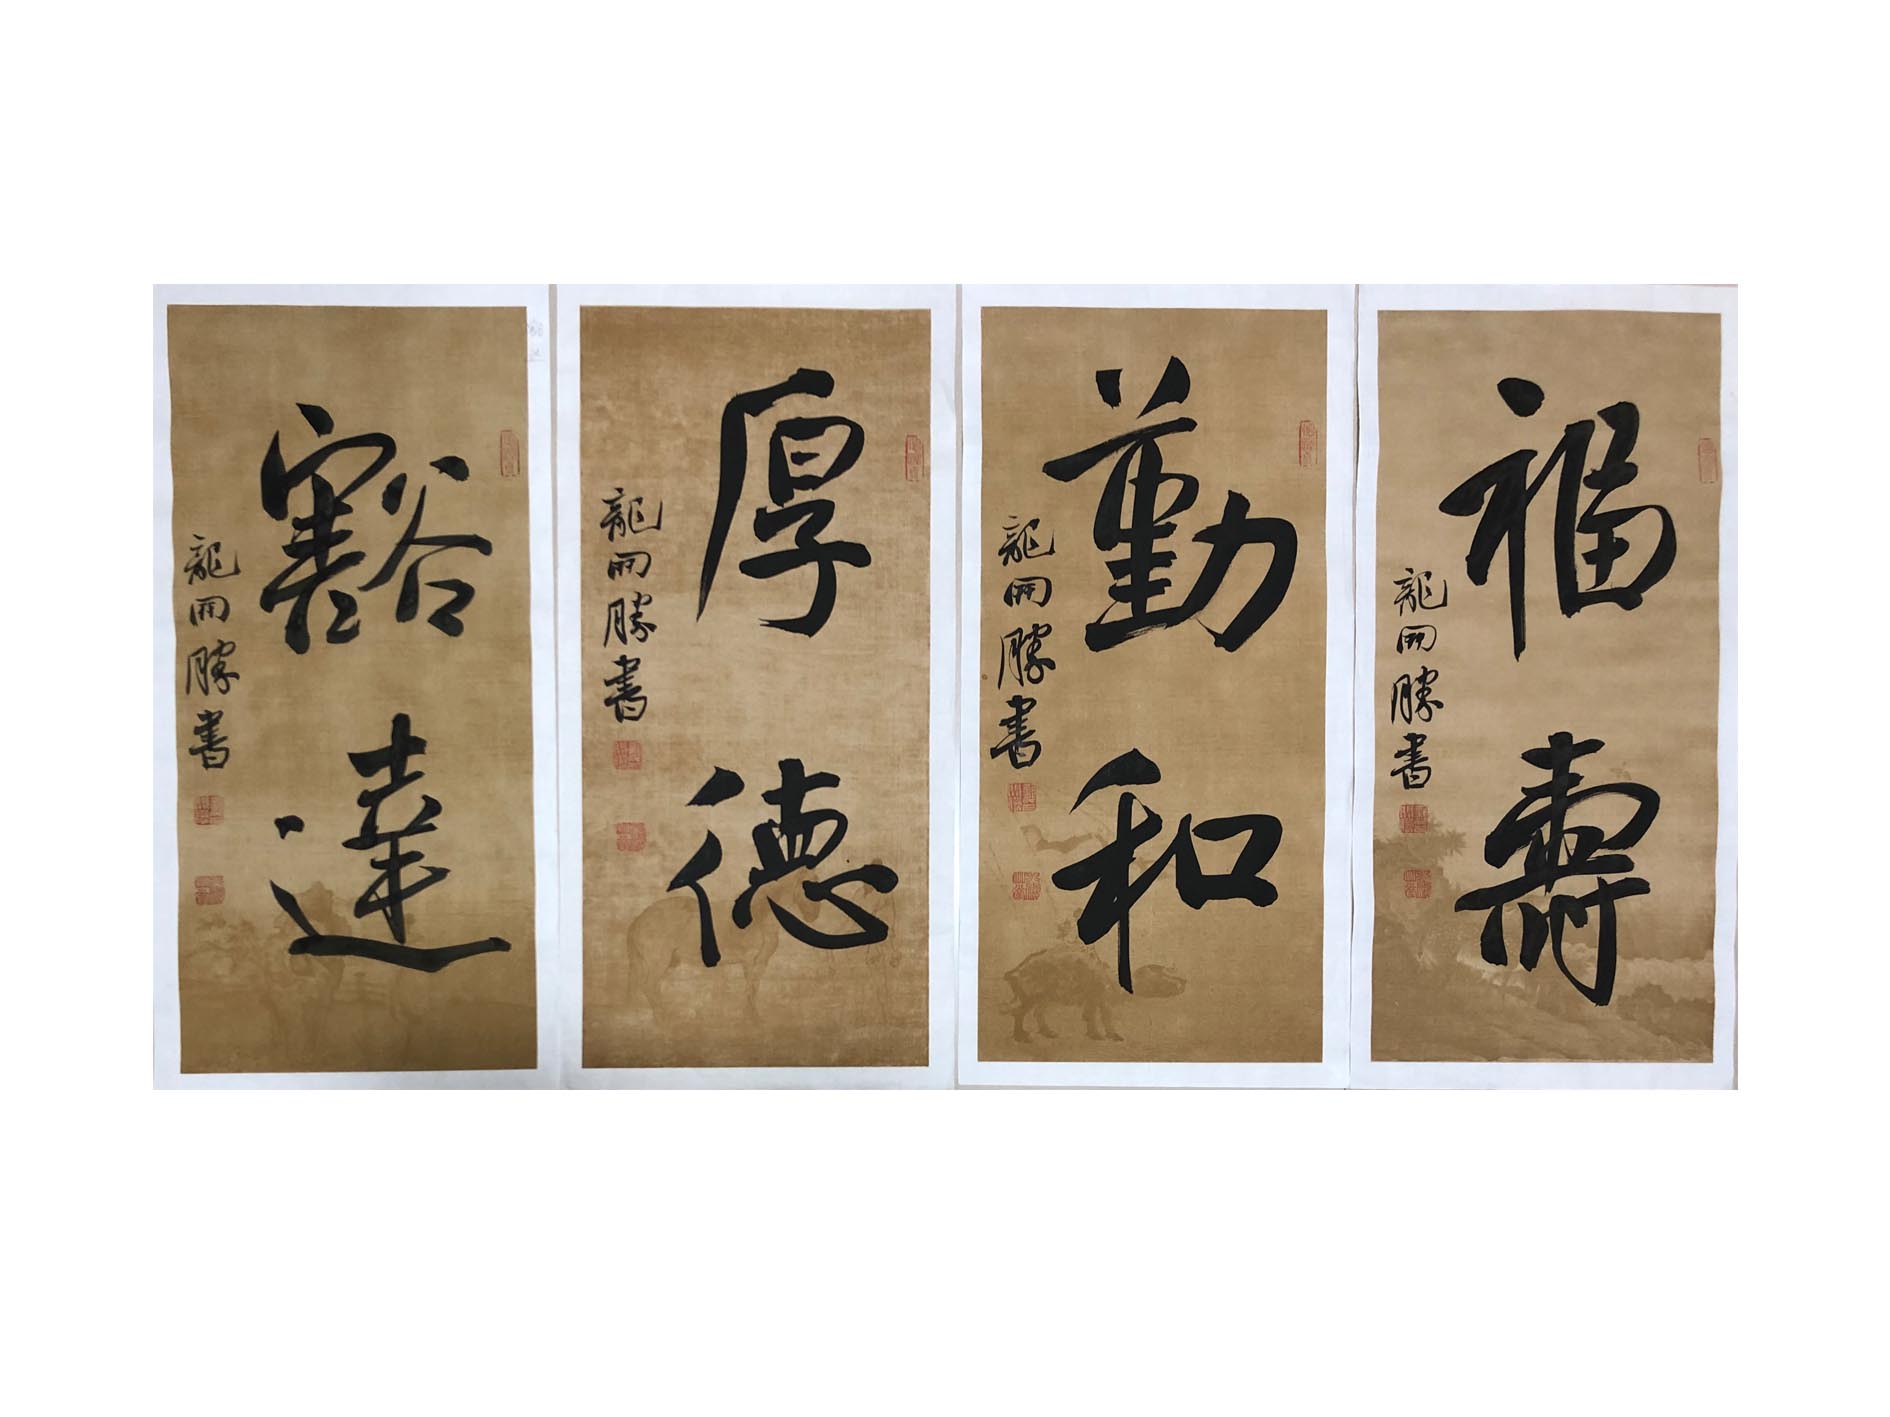 福壽
龍開勝書
勤和
龍開勝書
厚德
龍開勝書
豁達
龍開勝書